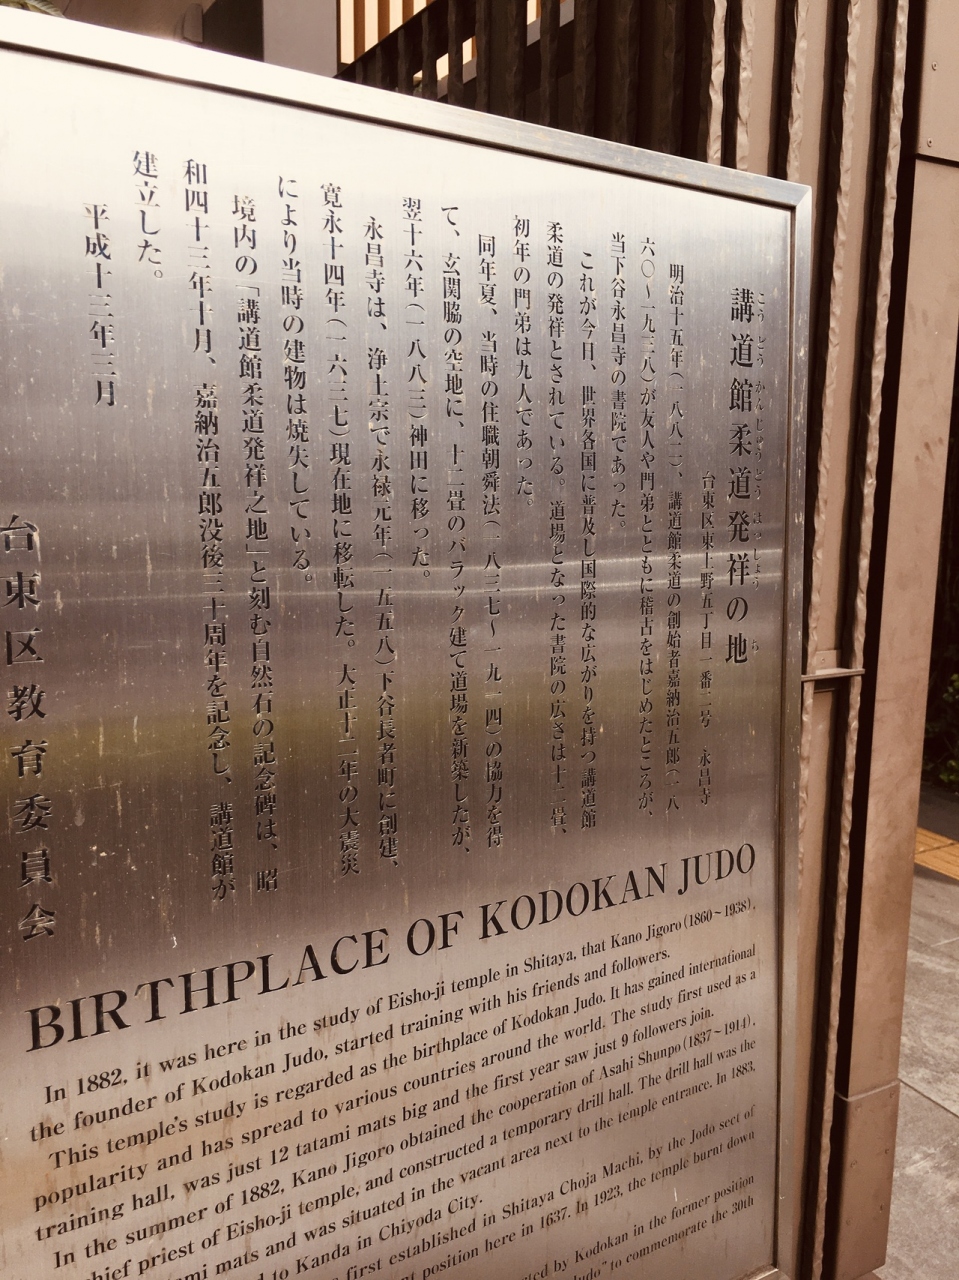 講道館柔道発祥の地
こうどうかんじゅうどうはっしょう ち
台東区東上野五丁目一番二号 永昌寺
明治十五年（一八八二）、講道館柔道の創始者嘉納治五郎（一八
六〇～一九三八）が友人や門弟とともに稽古をはじめたところが、
当下谷永昌寺の書院であった。
これが今日、世界各国に普及し国際的な広がりを持つ講道館
柔道の発祥とされている。道場となった書院の広さは十二畳、
初年の門弟は九人であった。
同年夏、当時の住職朝舜法（一八三七～一九一四）の協力を得
て、玄関脇の空地に、十二畳のバラック建て道場を新築したが、
翌十六年（一八八三）神田に移った。
永昌寺は、浄土宗で永禄元年（一五五八）下谷長者町に創建、
寛永十四年（一六三七）現在地に移転した。大正十二年の大震災
により当時の建物は焼失している。
境内の「講道館柔道発祥之地」と刻む自然石の記念碑は、昭
和四十三年十月、嘉納治五郎没後三十周年を記念し、講道館が
建立した。
平成十三年三月
台東区教育委員会
BIRTHPLACE OF KODOKAN JUDO
In 1882, it was here in the study of Eisho-ji temple in Shitaya, that Kano Jigoro (1860~1938),
the founder of Kodokan Judo, started training with his friends and followers.
This temple's study is regarded as the birthplace of Kodokan Judo. It has gained international
popularity and has spread to various countries around the world. The study first used as a
training hall, was just 12 tatami mats big and the first year saw just 9 followers join.
In the summer of 1882, Kano Jigoro obtained the cooperation of Asahi Shunpo (1837~1914),
chief priest of Eisho-ji temple, and constructed a temporary drill hall. The drill hall was the
mats and was situated in the vacant area next to the temple entrance. In 1883,
to Kanda in Chiyoda City.
first established in Shitaya Choja Machi, by the Jodo sect of
position here in 1637. In 1923, the temple burnt down
by Kodokan in the former position
to commemorate the 30th